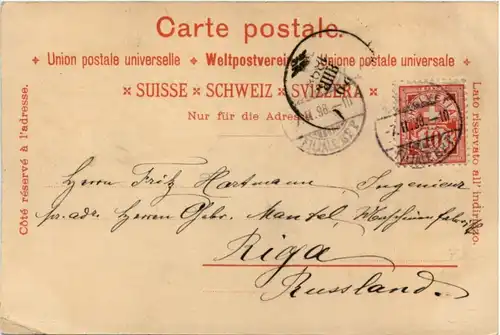 Carte postale.
+ Union postale universelle + Weltpostverein + Unione postale universale +
× SUISSE × SCHWEIZ × SVIZZERA ×
Nur für die Adresse.
Côté réservé à l'adresse.
Lato riservato all' indirizzo.
Herrn Fritz Hartmann, Ingenieur
pr. adr. Herren Gebr. Mantel, Maschinenfabrik
Riga
Russland.
10